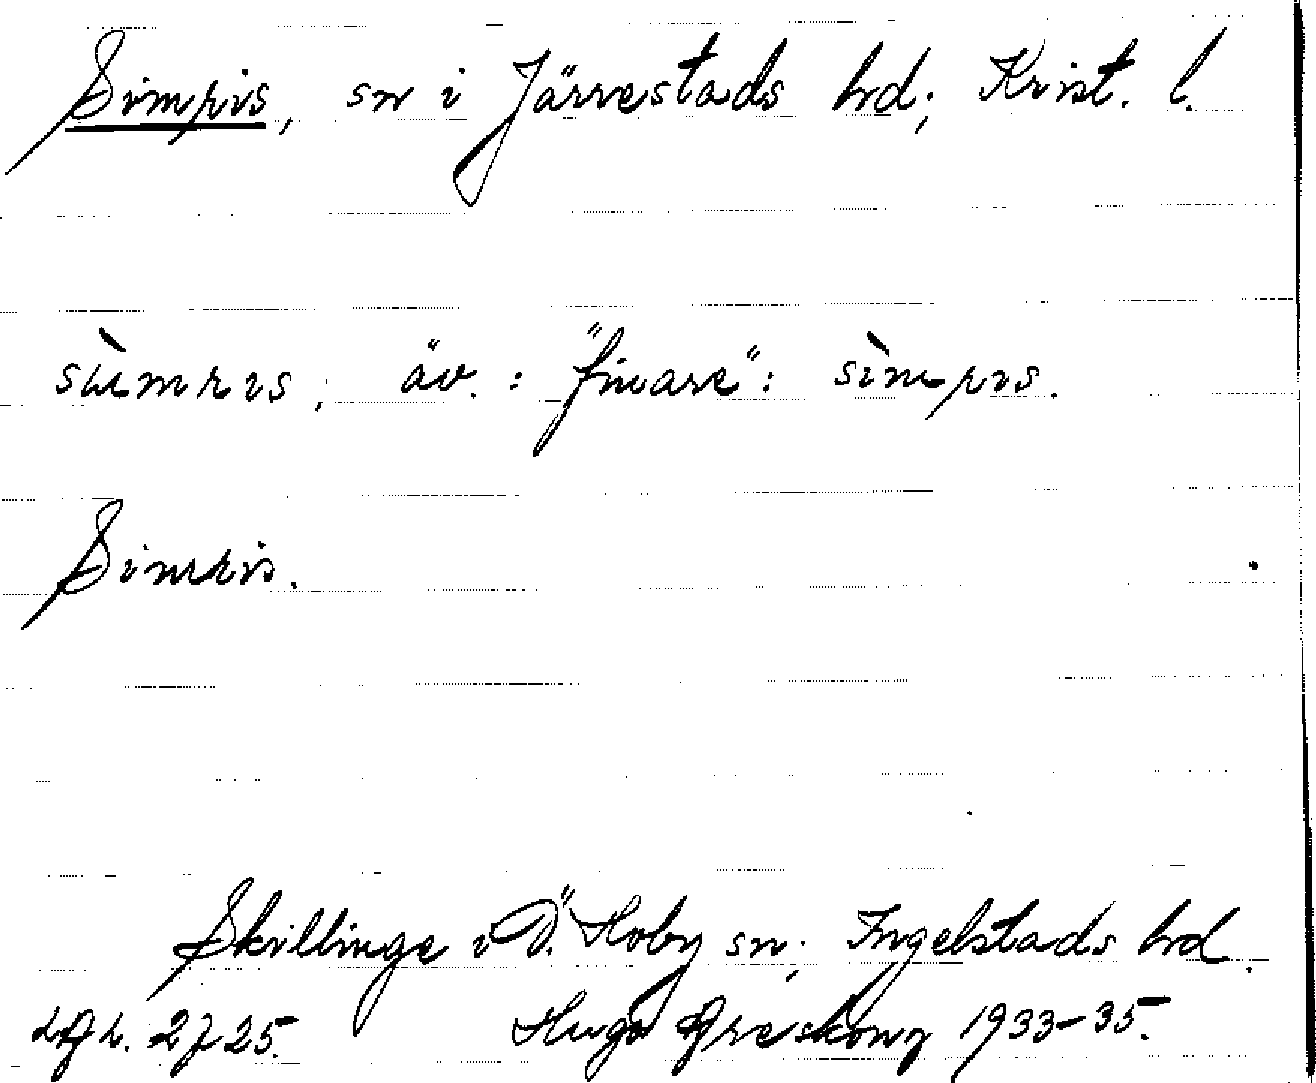 Simris, sn i Järrestads hd; Krist. l.
sìmris; äv.: "finare": sìmris.
Simris.
Skillinge i Ö. Hoby sn; Ingelstads hd.
2725. Hugo Areskoug 1933-35.